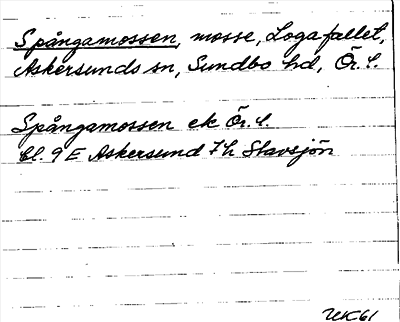 Spångamossen, mosse, Logafallet,
Askersunds sn, Sundbo hd, Ör. l.
Spångamossen ek Ör. l.
bl. 9 E Askersund 7h Slavsjön
UK61